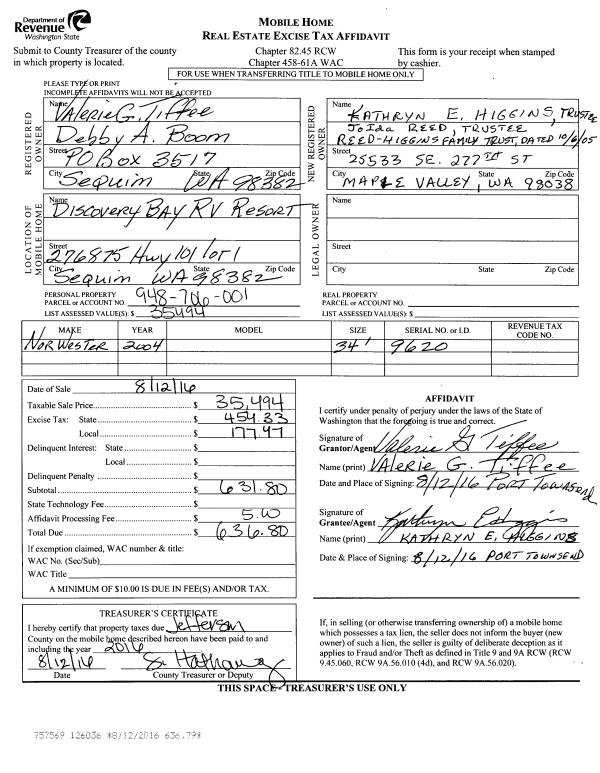 Department of
Revenue
Washington State
MOBILE HOME
REAL ESTATE EXCISE TAX AFFIDAVIT
Submit to County Treasurer of the county
in which property is located.
Chapter 82.45 RCW
Chapter 458-61A WAC
This form is your receipt when stamped
by cashier.
FOR USE WHEN TRANSFERRING TITLE TO MOBILE HOME ONLY
PLEASE TYPE OR PRINT
INCOMPLETE AFFIDAVITS WILL NOT BE ACCEPTED
REGISTERED
OWNER
Name Valerie G. Tiffee
Debby A. Boom
Street PO Box 3517
City State Zip Code
Sequim WA 98382
NEW REGISTERED
OWNER
Name
KATHRYN E. HIGGINS, TRUSTEE
JoIda REED, TRUSTEE
REED-HIGGINS FAMILY TRUST, DATED 10/6/05
Street 25533 SE. 277TH ST
City State Zip Code
MAPLE VALLEY, WA 98038
LOCATION OF
MOBILE HOME
Name
Discovery Bay RV Resort
Street
276875 Hwy 101 Lot 1
City State Zip Code
Sequim WA 98382
LEGAL OWNER
Name
Street
City State Zip Code
PERSONAL PROPERTY
PARCEL or ACCOUNT NO. 948-706-001
LIST ASSESSED VALUE(S): $ 35494
REAL PROPERTY
PARCEL or ACCOUNT NO.
LIST ASSESSED VALUE(S): $
MAKE YEAR MODEL SIZE SERIAL NO. or I.D. REVENUE TAX
CODE NO.
Nor'Wester 2004 34' 9620
Date of Sale 8/12/16
Taxable Sale Price $ 35,494
Excise Tax: State $ 454.33
Local $ 177.47
Delinquent Interest: State $
Local $
Delinquent Penalty $
Subtotal $ 631.80
State Technology Fee $
Affidavit Processing Fee $ 5.00
Total Due $ 636.80
If exemption claimed, WAC number & title:
WAC No. (Sec/Sub)
WAC Title
A MINIMUM OF $10.00 IS DUE IN FEE(S) AND/OR TAX.
AFFIDAVIT
I certify under penalty of perjury under the laws of the State of
Washington that the foregoing is true and correct.
Signature of
Grantor/Agent Valerie G Tiffee
Name (print) VAlerie G. Tiffee
Date and Place of Signing: 8/12/16 PORT TOWNSEND
Signature of
Grantee/Agent Kathryn E Higgins
Name (print) KATHRYN E. HIGGINS
Date & Place of Signing: 8/12/16 PORT TOWNSEND
TREASURER'S CERTIFICATE
I hereby certify that property taxes due Jefferson
County on the mobile home described hereon have been paid to and
including the year 2016
8/12/16
Date County Treasurer or Deputy
If, in selling (or otherwise transferring ownership of) a mobile home
which possesses a tax lien, the seller does not inform the buyer (new
owner) of such a lien, the seller is guilty of deliberate deception as it
applies to Fraud and/or Theft as defined in Title 9 and 9A RCW (RCW
9.45.060, RCW 9A.56.010 (4d), and RCW 9A.56.020).
THIS SPACE - TREASURER'S USE ONLY
757569 126036 *8/12/2016 636.79*